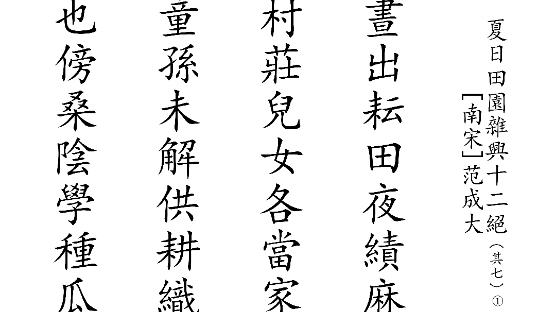 夏日田園雜興十二絕（其七）①
[南宋]范成大
晝出耘田夜績麻
村莊兒女各當家
童孫未解供耕織
也傍桑陰學種瓜